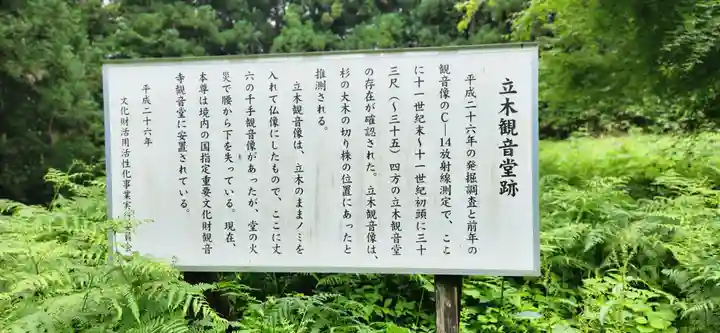 立木観音堂跡
平成二十六年の発掘調査と前年の
観音像のC―14放射線測定で、ここ
に十一世紀末~十一世紀初頭に三十
三尺（~三十五）四方の立木観音堂
の存在が確認された。立木観音像は、
杉の大木の切り株の位置にあったと
推測される。
立木観音像は、立木のままノミを
入れて仏像にしたもので、ここに丈
六の千手観音像があったが、堂の火
災で腰から下を失っている。現在、
本尊は境内の国指定重要文化財観音
寺観音堂に安置されている。
平成二十六年
文化財活用活性化事業実行委員会